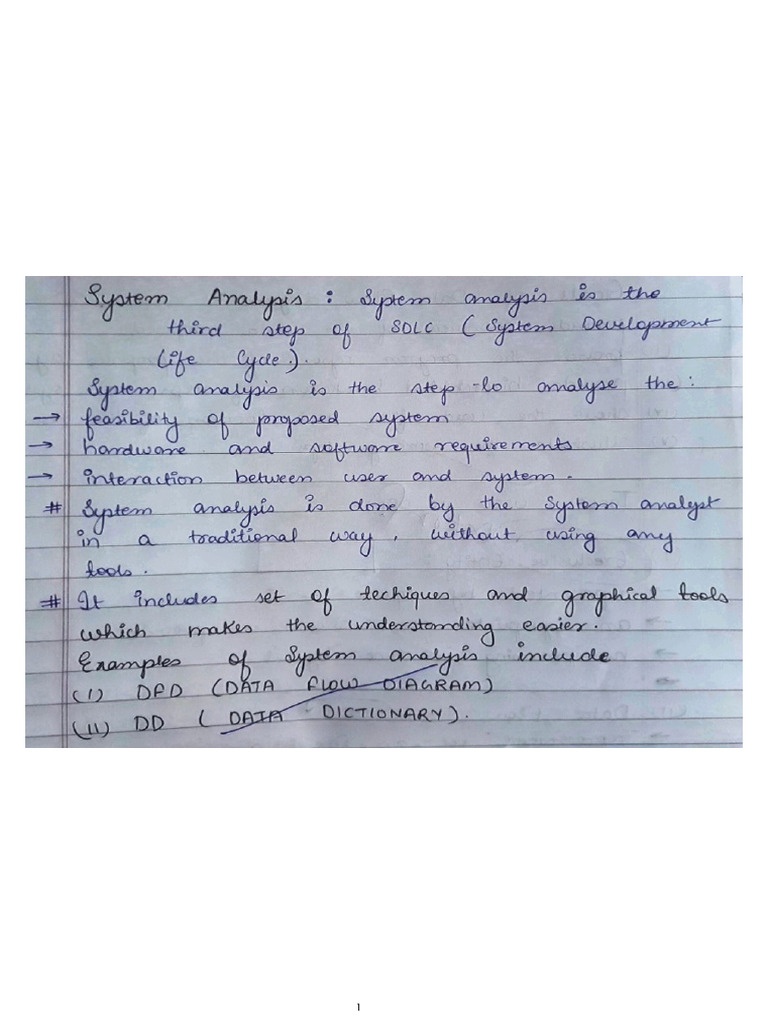 System Analysis : System analysis is the
third step of SDLC ( System Development
Life Cycle.).
System analysis is the step to analyse the :
→ feasibility of proposed system
→ hardware and software requirements
→ interaction between user and system.
# System analysis is done by the system analyst
in a traditional way, without using any
tools.
# It includes set of techiques and graphical tools
which makes the understanding easier.
Examples of System analysis include
(I) DFD (DATA FLOW DIAGRAM)
(II) DD ( DATA DICTIONARY).
1